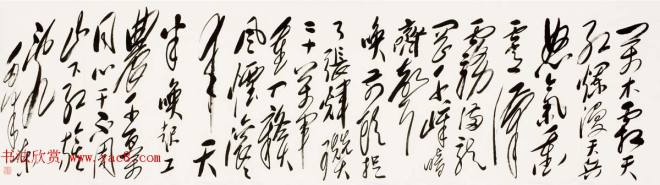 万木霜天
红烂漫天兵
怒气冲
霄汉
雾满龙
冈千嶂暗
齐声
唤前头捉
了张辉瓒
二十万军
重入赣
风烟滚滚
来天
半唤起工
农千百万
同心干不周
山下红旗
乱
书法欣赏 www.yac8.com